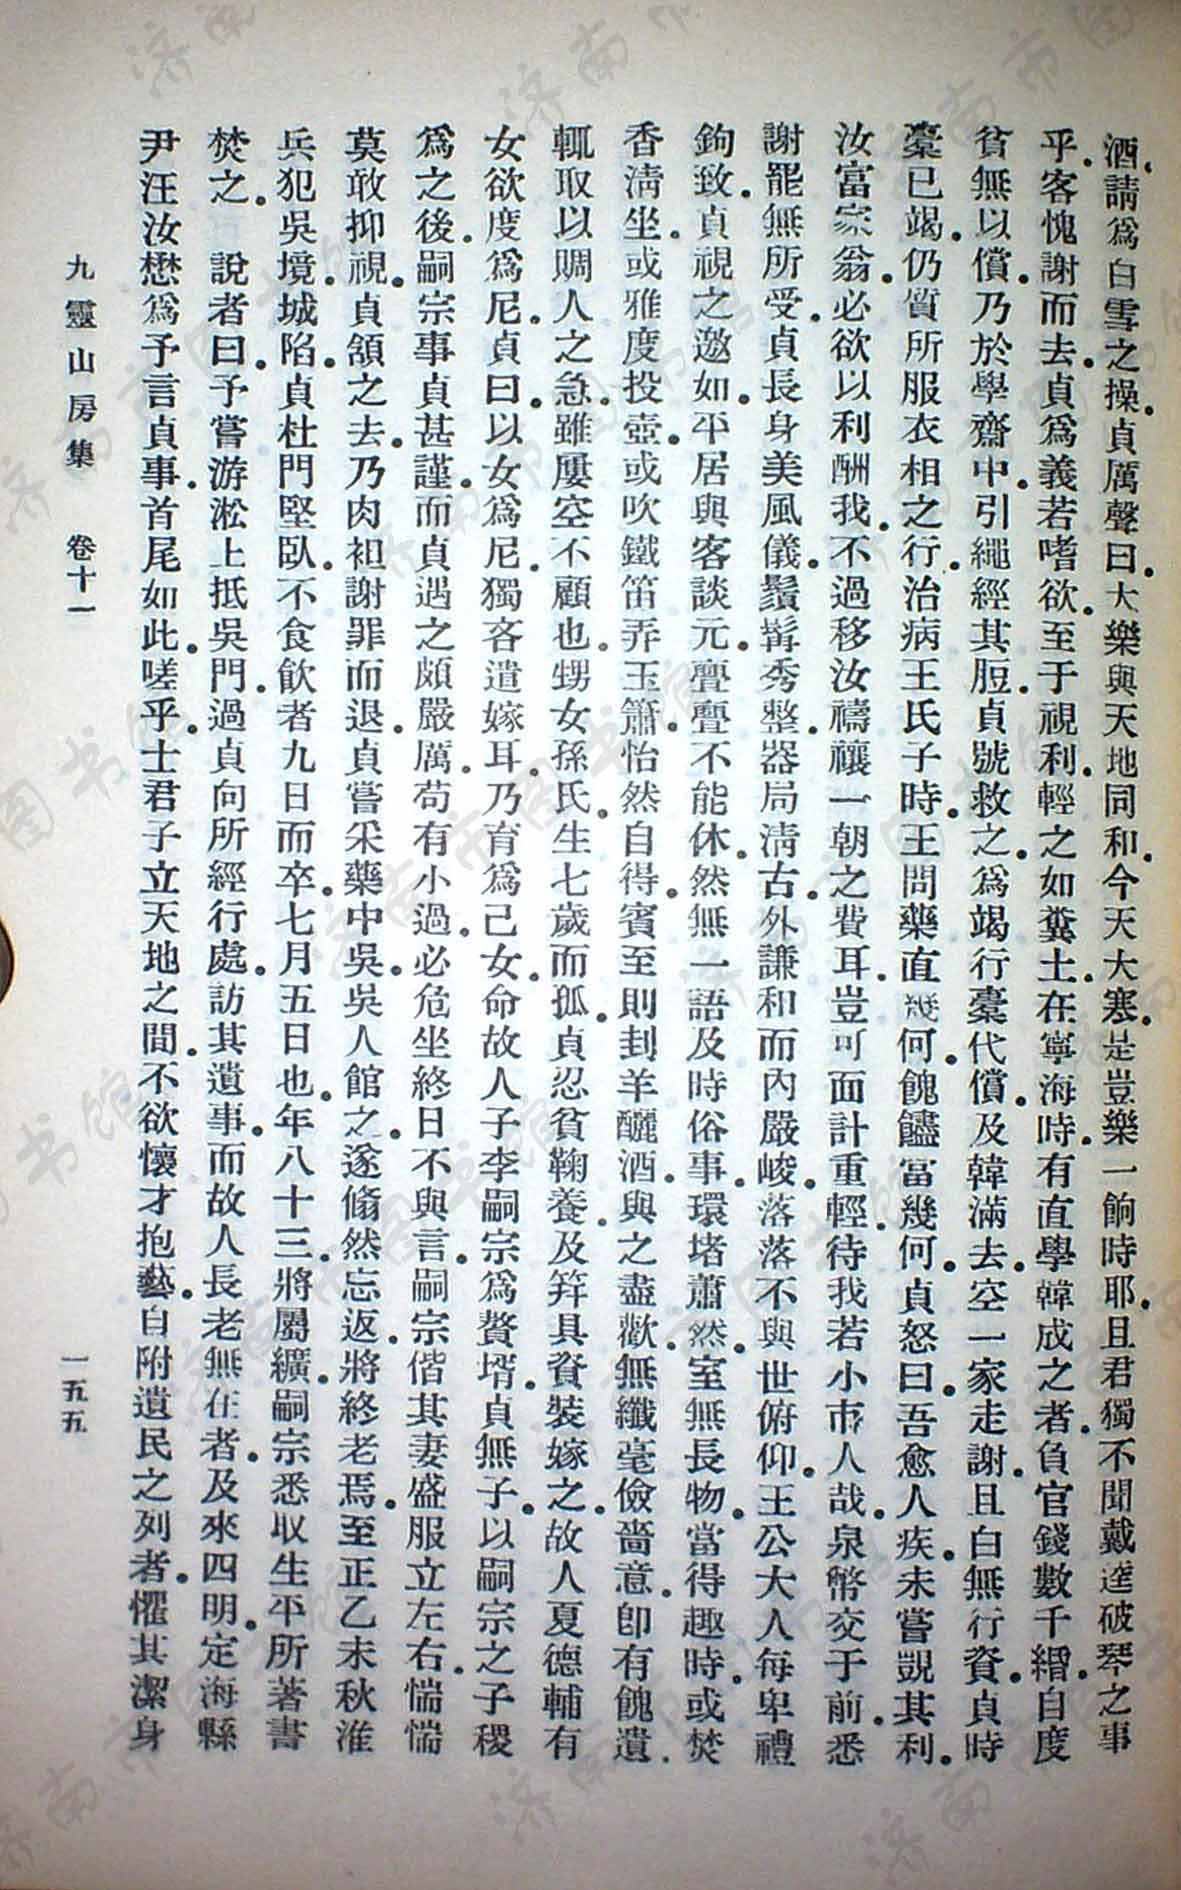 酒請爲白雪之操貞厲聲曰大樂與天地同和今天大寒是豈樂一餉時耶且君獨不聞戴逵破琴之事
乎客愧謝而去貞爲義若嗜欲至于視利輕之如糞土在寧海時有直學韓成之者負官錢數千緡自度
貧無以償乃於學齋中引繩經其脰貞號救之爲竭行橐代償及韓滿去空一家走謝且白無行資貞時
橐已竭仍質所服衣相之行治病王氏子時王問藥直幾何餽饚當幾何貞怒曰吾愈人疾未嘗覬其利
汝富家翁必欲以利酬我不過移汝禱禳一朝之費耳豈可面計重輕待我若小市人哉泉幣交于前悉
謝罷無所受貞長身美風儀鬚髯秀整器局清古外謙和而內嚴峻落落不與世俯仰王公大人每卑禮
鉤致貞視之邈如平居與客談元亹亹不能休然無一語及時俗事環堵蕭然室無長物當得趣時或焚
香清坐或雅度投壺或吹鐵笛弄玉簫怡然自得賓至則刲羊釃酒與之盡歡無纖毫儉嗇意卽有餽遺
輒取以賙人之急雖屢空不顧也甥女孫氏生七歲而孤貞忍貧鞠養及笄具資裝嫁之故人夏德輔有
女欲度爲尼貞曰以女爲尼獨吝遣嫁耳乃育爲己女命故人子李嗣宗爲贅壻貞無子以嗣宗之子稷
爲之後嗣宗事貞甚謹而貞遇之頗嚴厲苟有小過必危坐終日不與言嗣宗偕其妻盛服立左右惴惴
莫敢抑視貞頷之去乃肉袒謝罪而退貞嘗采藥中吳吳人館之遂翛然忘返將終老焉至正乙未秋淮
兵犯吳境城陷貞杜門堅臥不食飲者九日而卒七月五日也年八十三將屬纊嗣宗悉取生平所著書
焚之　說者曰予嘗游淞上抵吳門過貞向所經行處訪其遺事而故人長老無在者及來四明定海縣
尹汪汝懋爲予言貞事首尾如此嗟乎士君子立天地之間不欲懷才抱藝自附遺民之列者懼其潔身
九靈山房集　卷十一　一五五